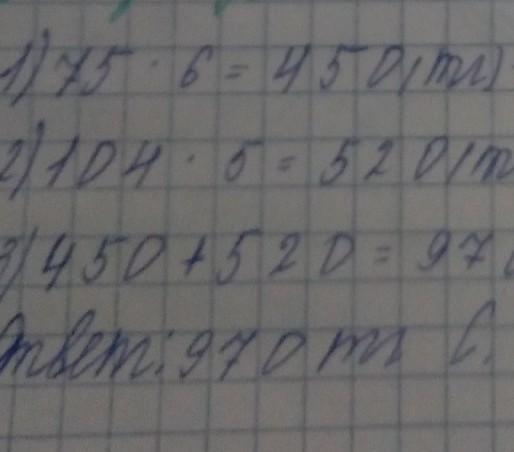 1) 75 · 6 = 450 (тг)
2) 104 · 5 = 520 (т
3) 450 + 520 = 97
Ответ: 970 тг